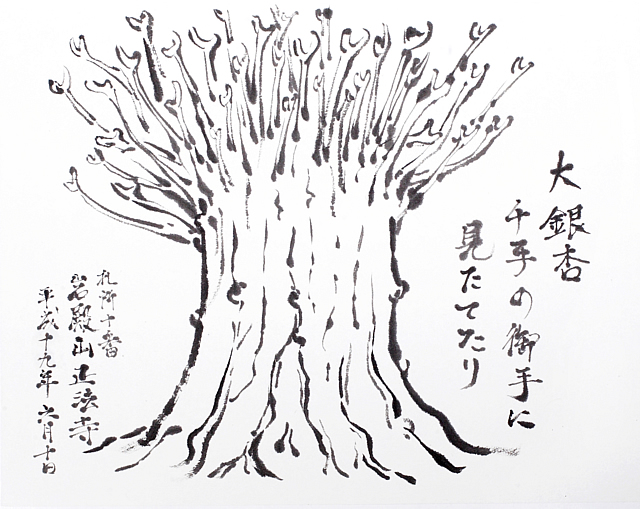 大銀杏
千手の御手に
見たてたり
札所十番
岩殿山正法寺
平成十九年六月十日